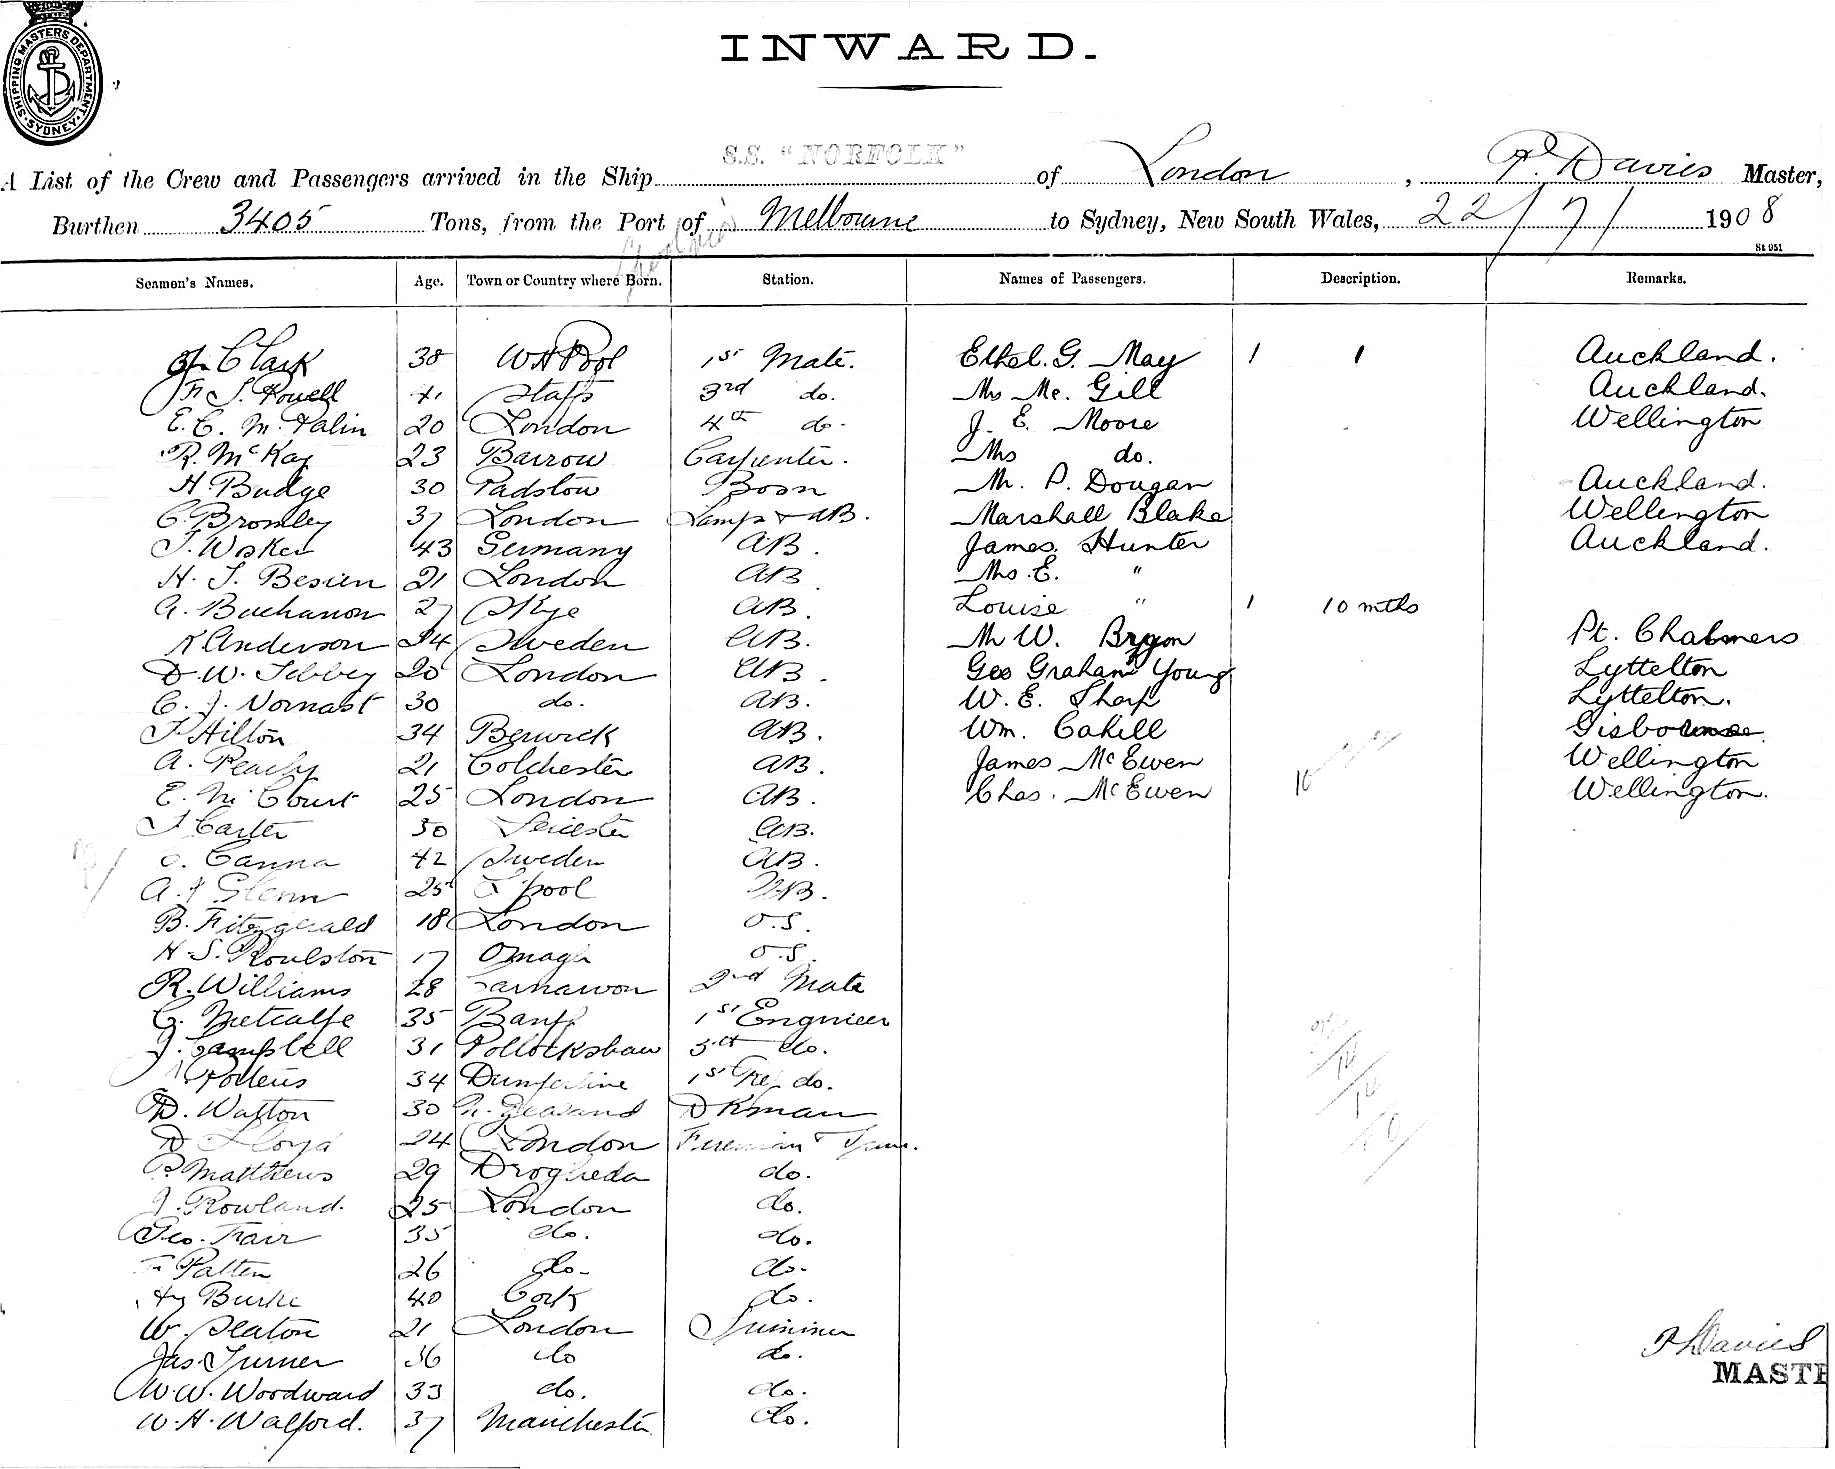 SHIPPING MASTERS DEPARTMENT. SYDNEY.
INWARD.
A List of the Crew and Passengers arrived in the Ship S.S. "NORFOLK" of London, Davies Master,
Burthen 3405 Tons, from the Port of Melbourne to Sydney, New South Wales, 22/7/ 1908
St 951
Seamen's Names. Age. Town or Country where Born. Station. Names of Passengers. Description. Remarks.
Clark 38 1st Mate. Ethel. G. May 1 1 Auckland.
41 Staffs 3rd do. Mrs Mc. Gill Auckland.
E. C. M. Palin 20 London 4th do. J. E. Moore Wellington
R. McKay 23 Barrow Carpenter. Mrs do.
H. Budge 30 Padstow Bosn Mr. P. Dougan Auckland.
C. Bromley 37 London Lamps & AB. Marshall Blake Wellington
43 Germany AB. James Hunter Auckland.
H. J. Besien 21 London AB Mrs. E. "
A. Buchanon 27 Skye AB. Louise " 1 10 mths
K Anderson 34 Sweden AB. Mr W. Pt. Chalmers
D. W. Tebbey 20 London AB. Geo Graham Young Lyttelton
C. J. 30 do. AB. W. E. Sharp Lyttelton.
F Hilton 34 Berwick AB. Wm. Cahill Gisborne
A. 21 Colchester AB. James McEwen Wellington
E. McCourt 25 London AB. Chas. McEwen Wellington.
Carter 30 Leicester AB.
C. Canna 42 Sweden AB.
A. J Glenn 25 L'pool AB.
B. Fitzgerald 18 London O.S.
H. S. Roulston 17 Omagh O.S.
R. Williams 28 Carnarvon 2nd Mate
G. Metcalfe 35 Banff 1st Engineer
J. Campbell 31 Pollockshaw do.
Porteus 34 1st Ref. do.
D. Watson 30 Dkman
D Lloyd 24 London Fireman & Trim.
P. Matthews 29 Drogheda do.
J. Rowland. 25 London do.
Geo. Fair 35 do. do.
Patten 26 do. do.
Hy Burke 40 Cork do.
W. Seaton 21 London Trimmer
Jas. Turner 36 do do.
W. W. Woodward 33 do. do.
W. H. Walford. 37 Manchester do.
Davies
MASTE